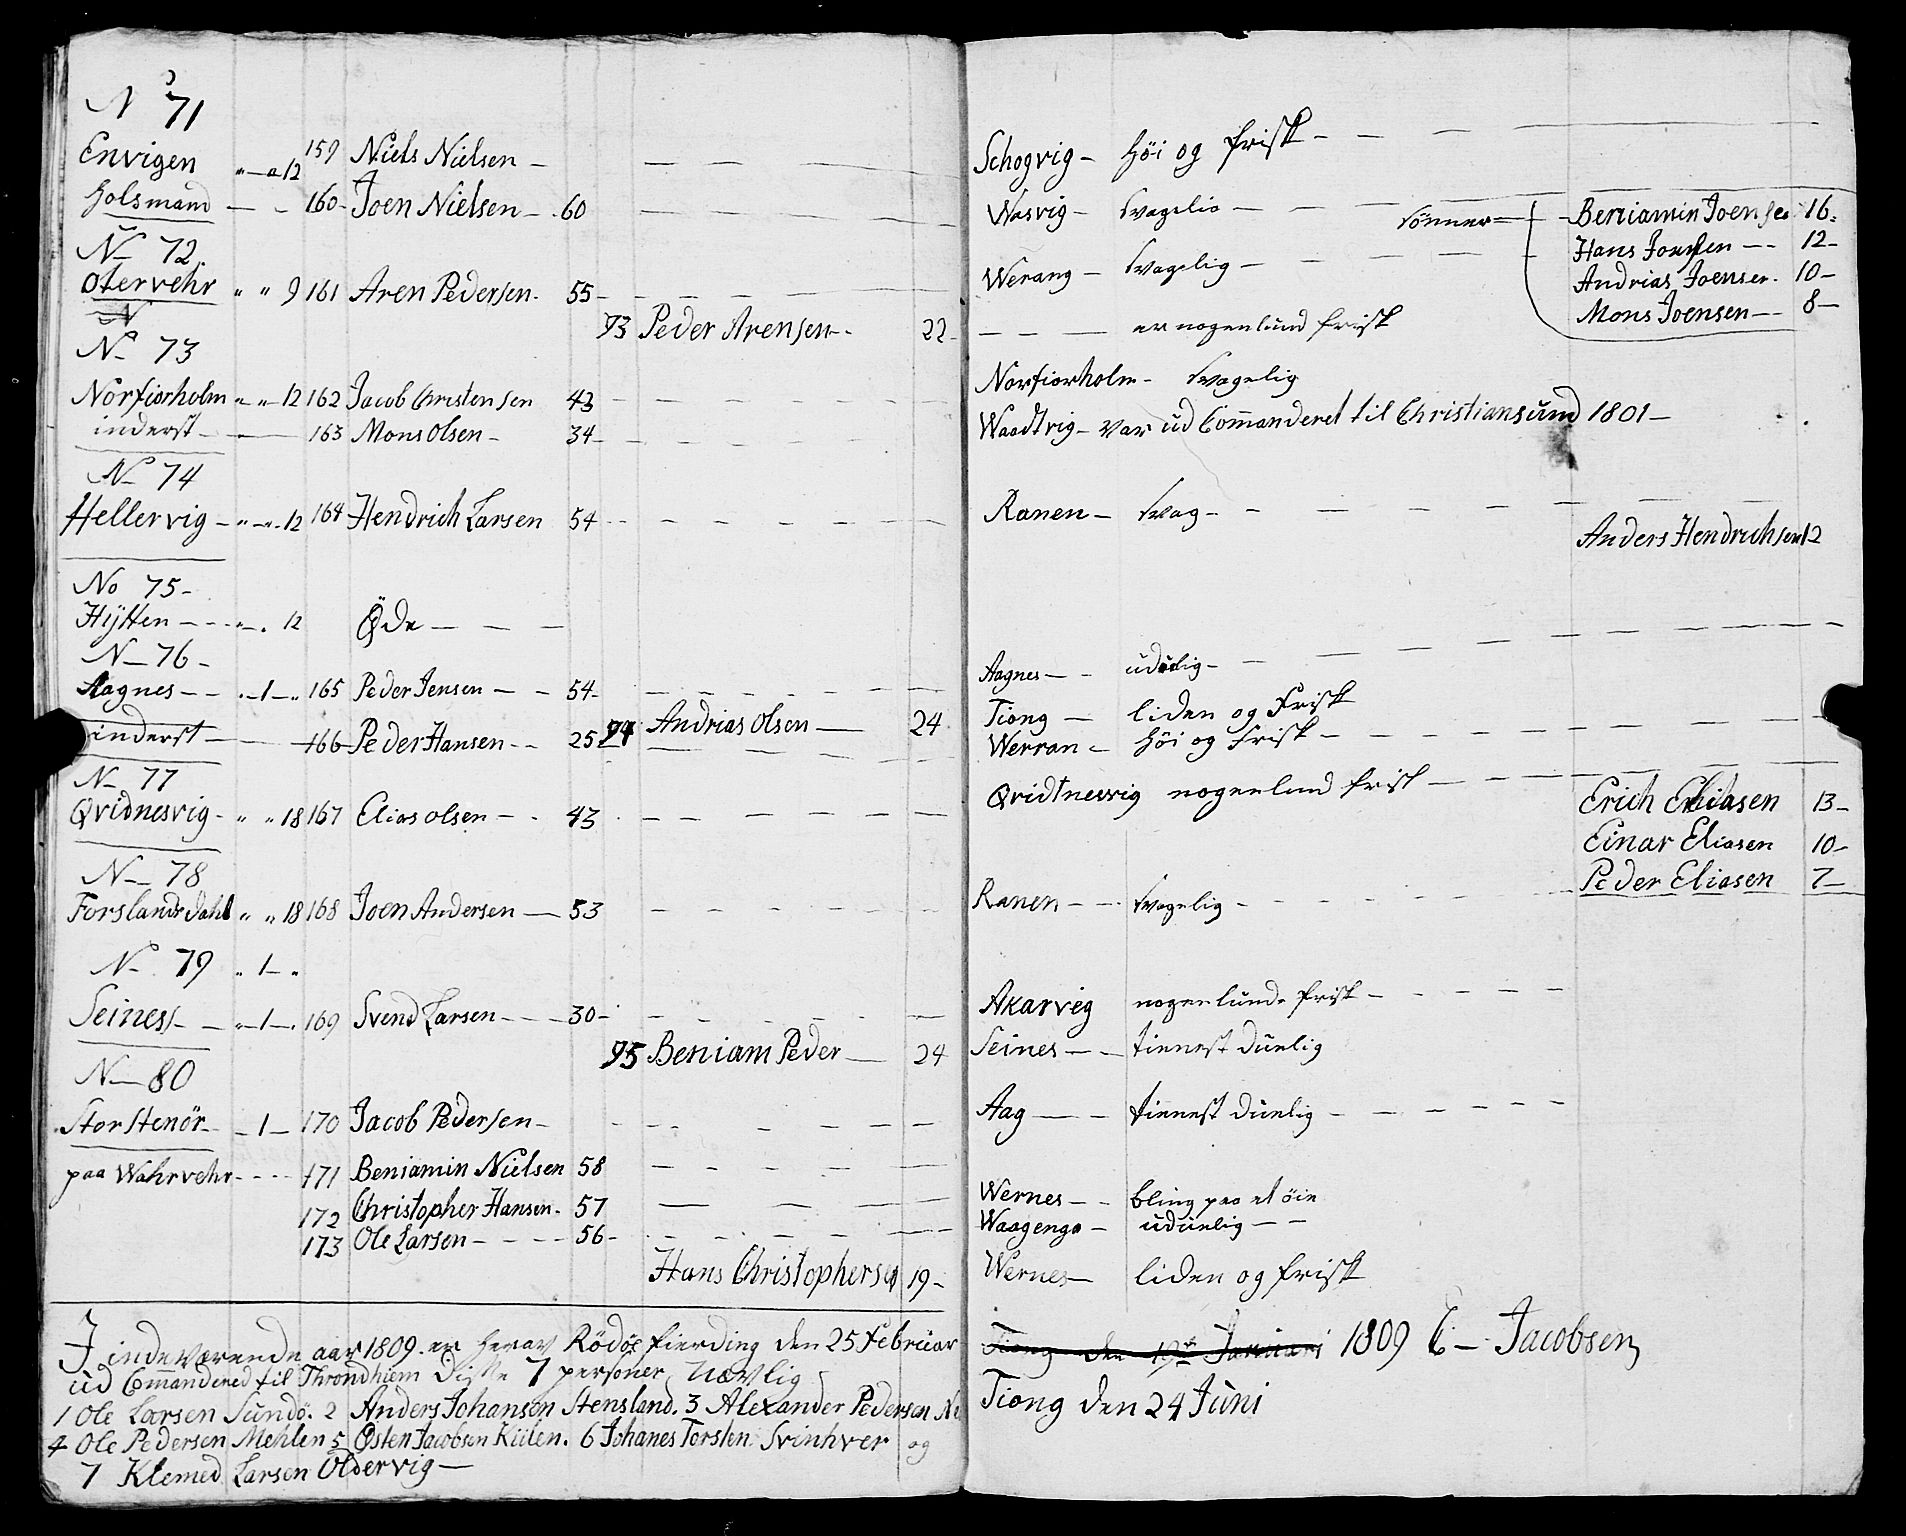 N 71
Envigen „—„12 159 Niels Nielsen —
holsmand — - 160- Joen Nielsen — . 60
N— 72.
Otervehr „ „ 9 161 Aren Pedersen. 55-
N
93 Peder Arensen-. 22-
N- 73
Norfiorholm „ „ 12 162 Jacob Christensen 43
inderst — — 163 Mons Olsen - 34-
N— 74
Hellervig — „—„. 12 164 Hendrich Larsen 54
No 75-
Hÿtten — - - „—. 12 Øde — — —
N— 76-
Aagnes — - .—1—„ 165 Peder Jensen — - 54-
94 Andrias Olsen — 24
inderst — — 166 Peder Hansen - - 25
N- 77
Qvidnesvig - „ „ 18 167 Elias Olsen — - 43
N— 78
Forslands Dahl „ „ 18 168 Joen Andersen — 53
N- 79 „ 1— „
Seines — - „—1—. 169 Svend Larsen - - — 30-
95 Beniam Peder — 24
N— 80
Stor Stenör - —1— 170 Jacob Pedersen-
paa Wahrvehr - - - - 171 Beniamin Nielsen 58
172 Christopher Hansen. 57
173 Ole Larsen - - - - 56-
Hans Christophersen 19-
I indeværende aar 1809. er herav Rödöe fierding den 25 Februar
ud Comandered til Throndhiem Disse 7 personer Nævlig
1 Ole Larsen Sundö. 2 Anders Johansen Stensland. 3 Alexander Pedersen
4 Ole Pedersen Mehlen 5 Østen Jacobsen Kiilen. 6 Johanes Torsten Svinhver og
7 Klemed Larsen Oldervig —
Schogvig - höi og frisk - — —
Wasvig - svagelig — — — Sönner — Beniamin Joensen 16-
Hans Joensen - - 12-
Werang - svagelig — — — —
Andrias Joensen. 10-
Mons Joensen - - 8-
— — — er nogenlund frisk
Norfiorholm - svagelig
Waadtvig - var ud Commanderet til Christiansund 1801 -
Ranen - svag - - — — —
Anders Hendrichsen 12
Aagnes — - udülig -
Tiong — liden og Frisk
Werran - höi og frisk -
Qvidtnesvig nogenlund frisk — Erich Eliasen 13-
Einar Eliasen 10-
Peder Eliasen 7-
Ranen - - svagelig -
Akarvig nogenlunde frisk -
Seines — - tienest düelig
Aag — - tienest düelig -
Wernes - - bling paa et öie
Waagenga - udüelig - -
Wernes — liden og frisk
Tiong den 19de Januari 1809 C - Jacobsen
Tiong den 24 Juni